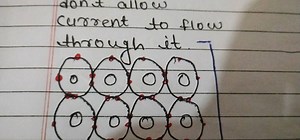 don't allow
current to flow
through it.